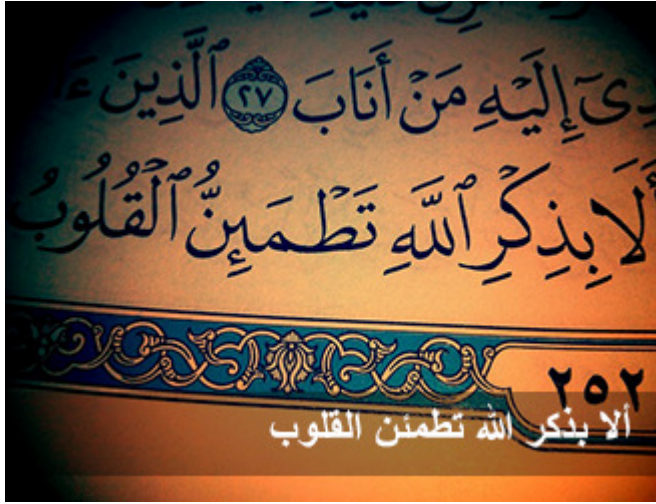 دِىٓ إِلَيْهِ مَنْ أَنَابَ ٢٧ ٱلَّذِينَ
أَلَا بِذِكْرِ ٱللَّهِ تَطْمَئِنُّ ٱلْقُلُوبُ
٢٥٢
ألا بذكر الله تطمئن القلوب